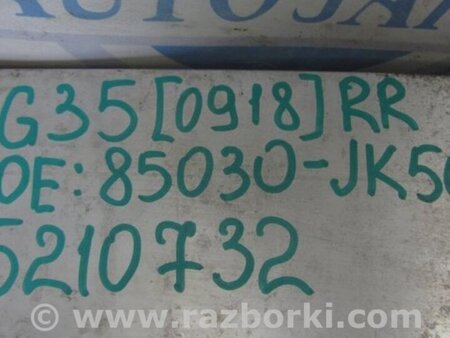 AUTOJAP
G35[0918]RR
OE:85030-JK50
5210732
© www.razborki.com